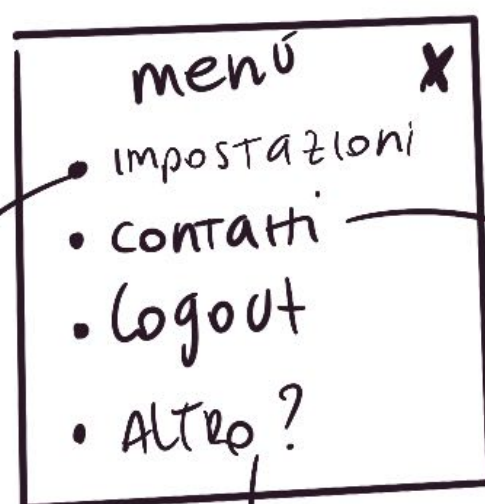 menú X
• impostazioni
• contatti
• logout
• ALTRO ?